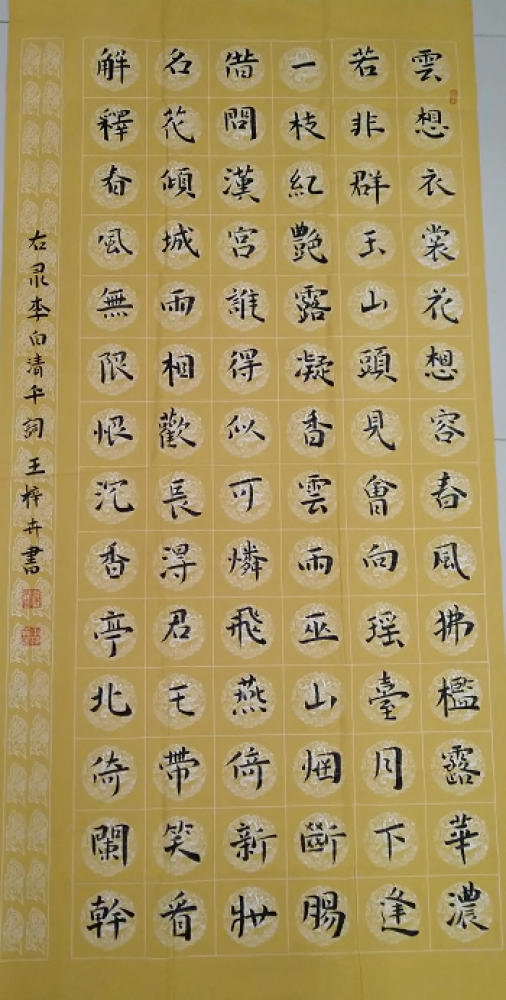 雲想衣裳花想容春風拂檻露華濃
若非群玉山頭見會向瑶臺月下逢
一枝紅艷露凝香雲雨巫山斷腸
借問漢宮誰得似可憐飛燕倚新妝
名花傾城雨相歡長得君王帶笑看
解釋春風無限恨沉香亭北倚闌幹
右录李白清平詞王梓卉書